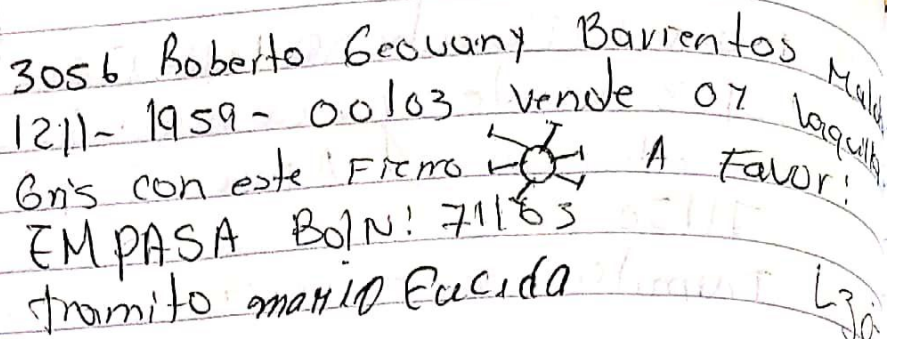 3056 Roberto Geovany Barrientos
1211- 1959- 00103 vende 07 laquilla
Gris con este Fierro A Favor:
EMPASA Bol N! 71163
tramito mario